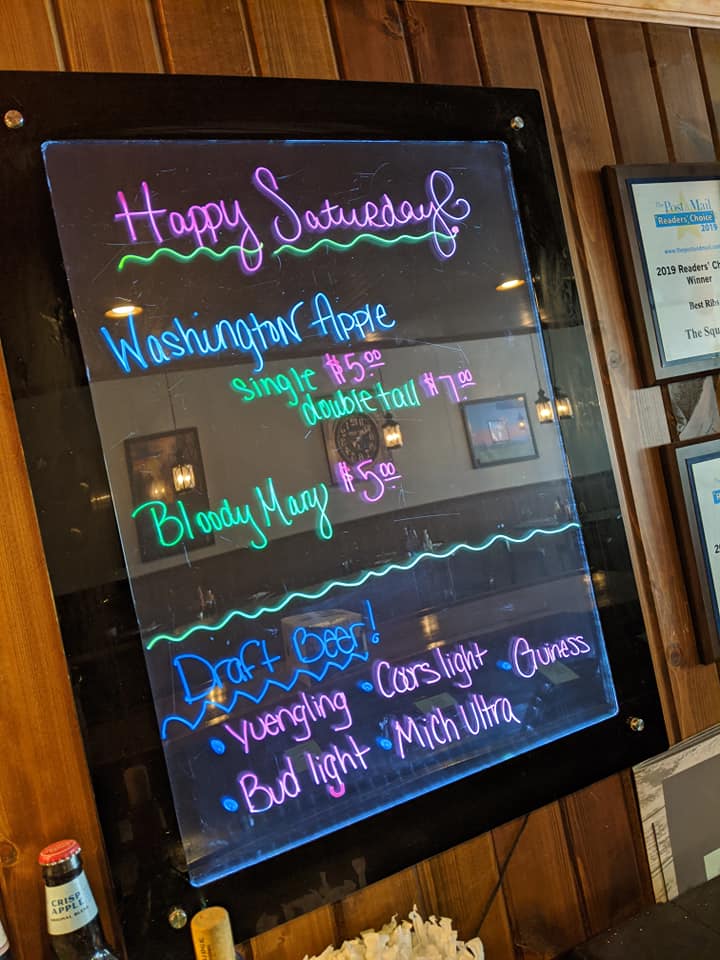 Happy Saturday
Washington Apple
single $5.00
double tall $7.00
Bloody Mary $5.00
Draft Beer!
• Yuengling • Coors light • Guiness
• Bud light • Mich Ultra
The Post & Mail
Readers' Choice
2019
2019 Readers' Ch
Winner
Best Ribs
The Squ
CRISP
APPLE